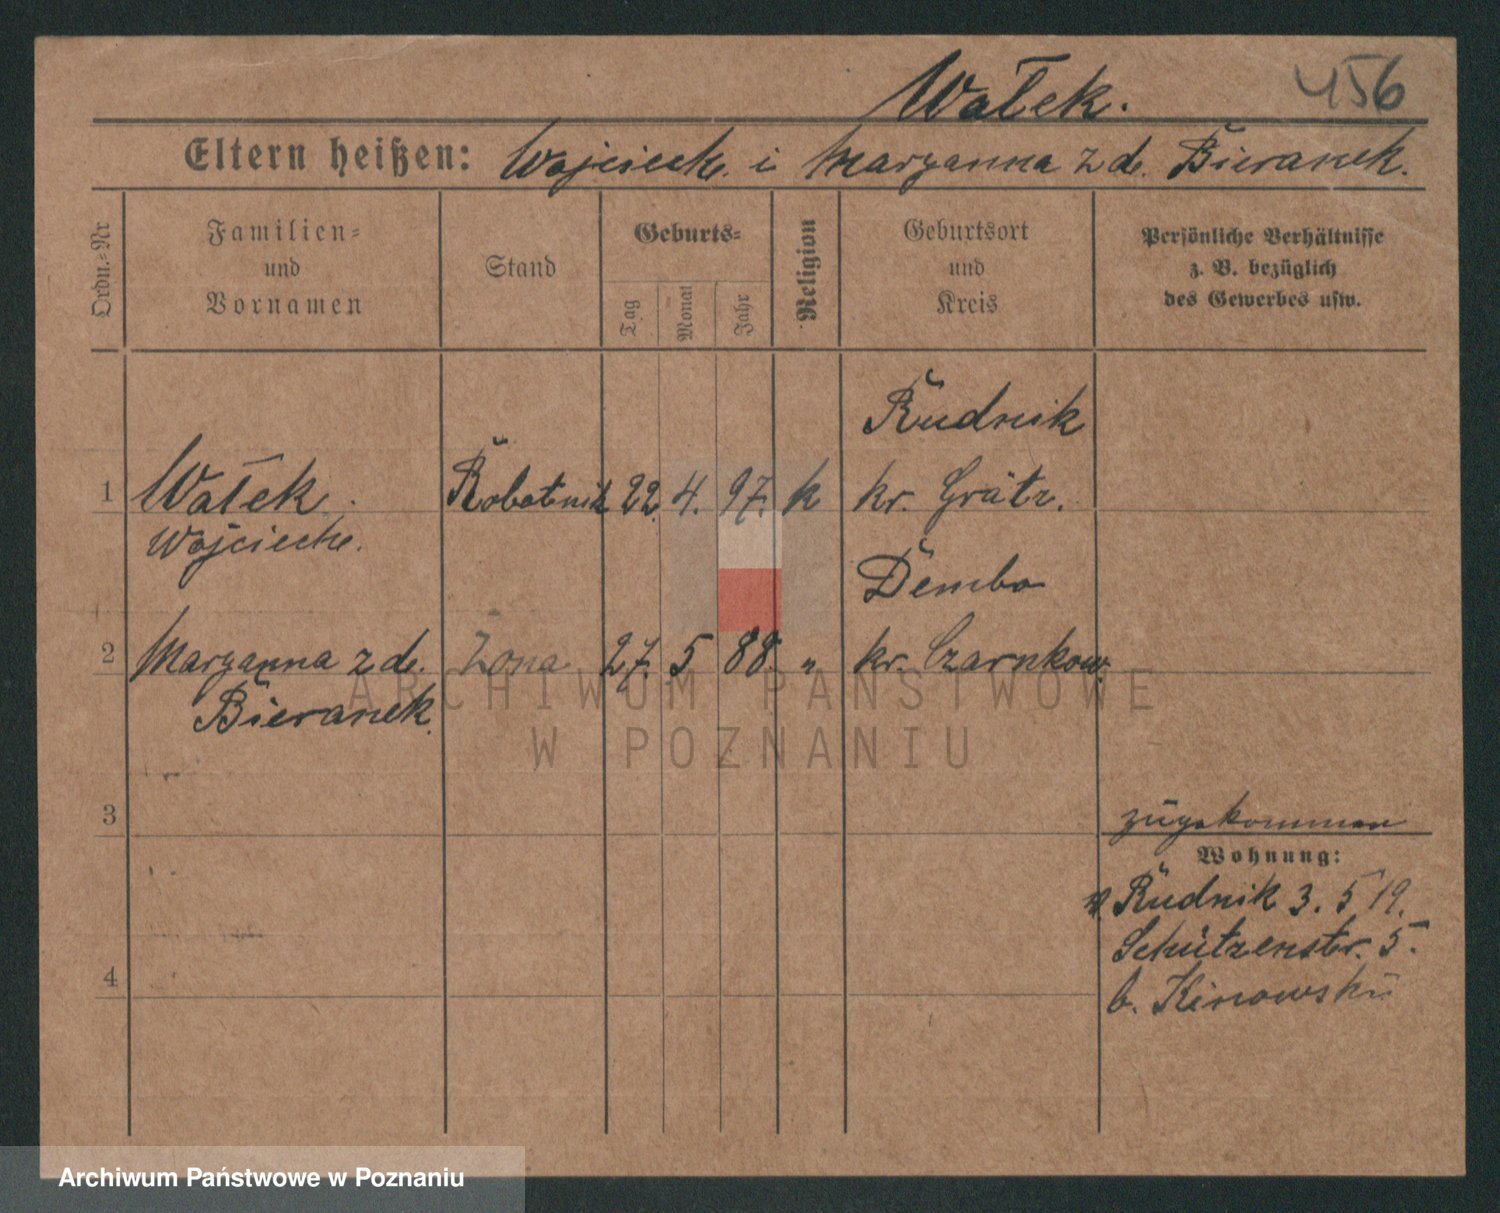 Wałek. 456
Eltern heißen: Wojciech. i Maryanna z d. Bieranek.
Ordn.-Nr
Familien-
und
Vornamen
Stand
Geburts-
Tag
Monat
Jahr
Religion
Geburtsort
und
Kreis
Persönliche Verhältnisse
z. B. bezüglich
des Gewerbes usw.
Rudnik
1 Wałek. Robotnik 22. 4. 97. k kr. Grätz.
Wojciech.
Dembo
2 Maryanna z d. Żona 27. 5 88. " kr. Czarnkow.
Bieranek.
3 zugekommen
Wohnung:
Rudnik 3. 5 19.
Schützenstr. 5.
4
b. Kinowski
ARCHIWUM PAŃSTWOWE
W POZNANIU
Archiwum Państwowe w Poznaniu